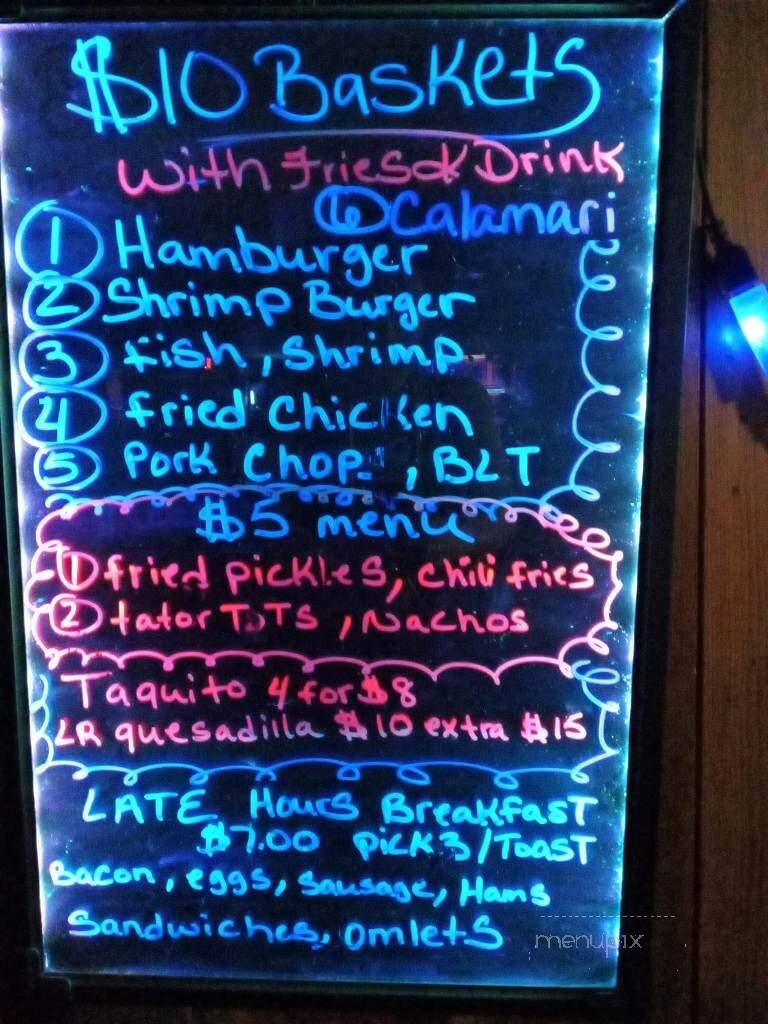 $10 Baskets
with fries & Drink
6 Calamari
1 Hamburger
2 Shrimp Burger
3 fish, shrimp
4 fried chicken
5 Pork Chop , BLT
$5 menu
1 fried pickles, chili fries
2 tator TOTS , Nachos
Taquito 4 for $8
LR quesadilla $10 extra $15
LATE Hours Breakfast
$7.00 pick 3/Toast
Bacon, eggs, sausage, Hams
Sandwiches, omlets
menupix